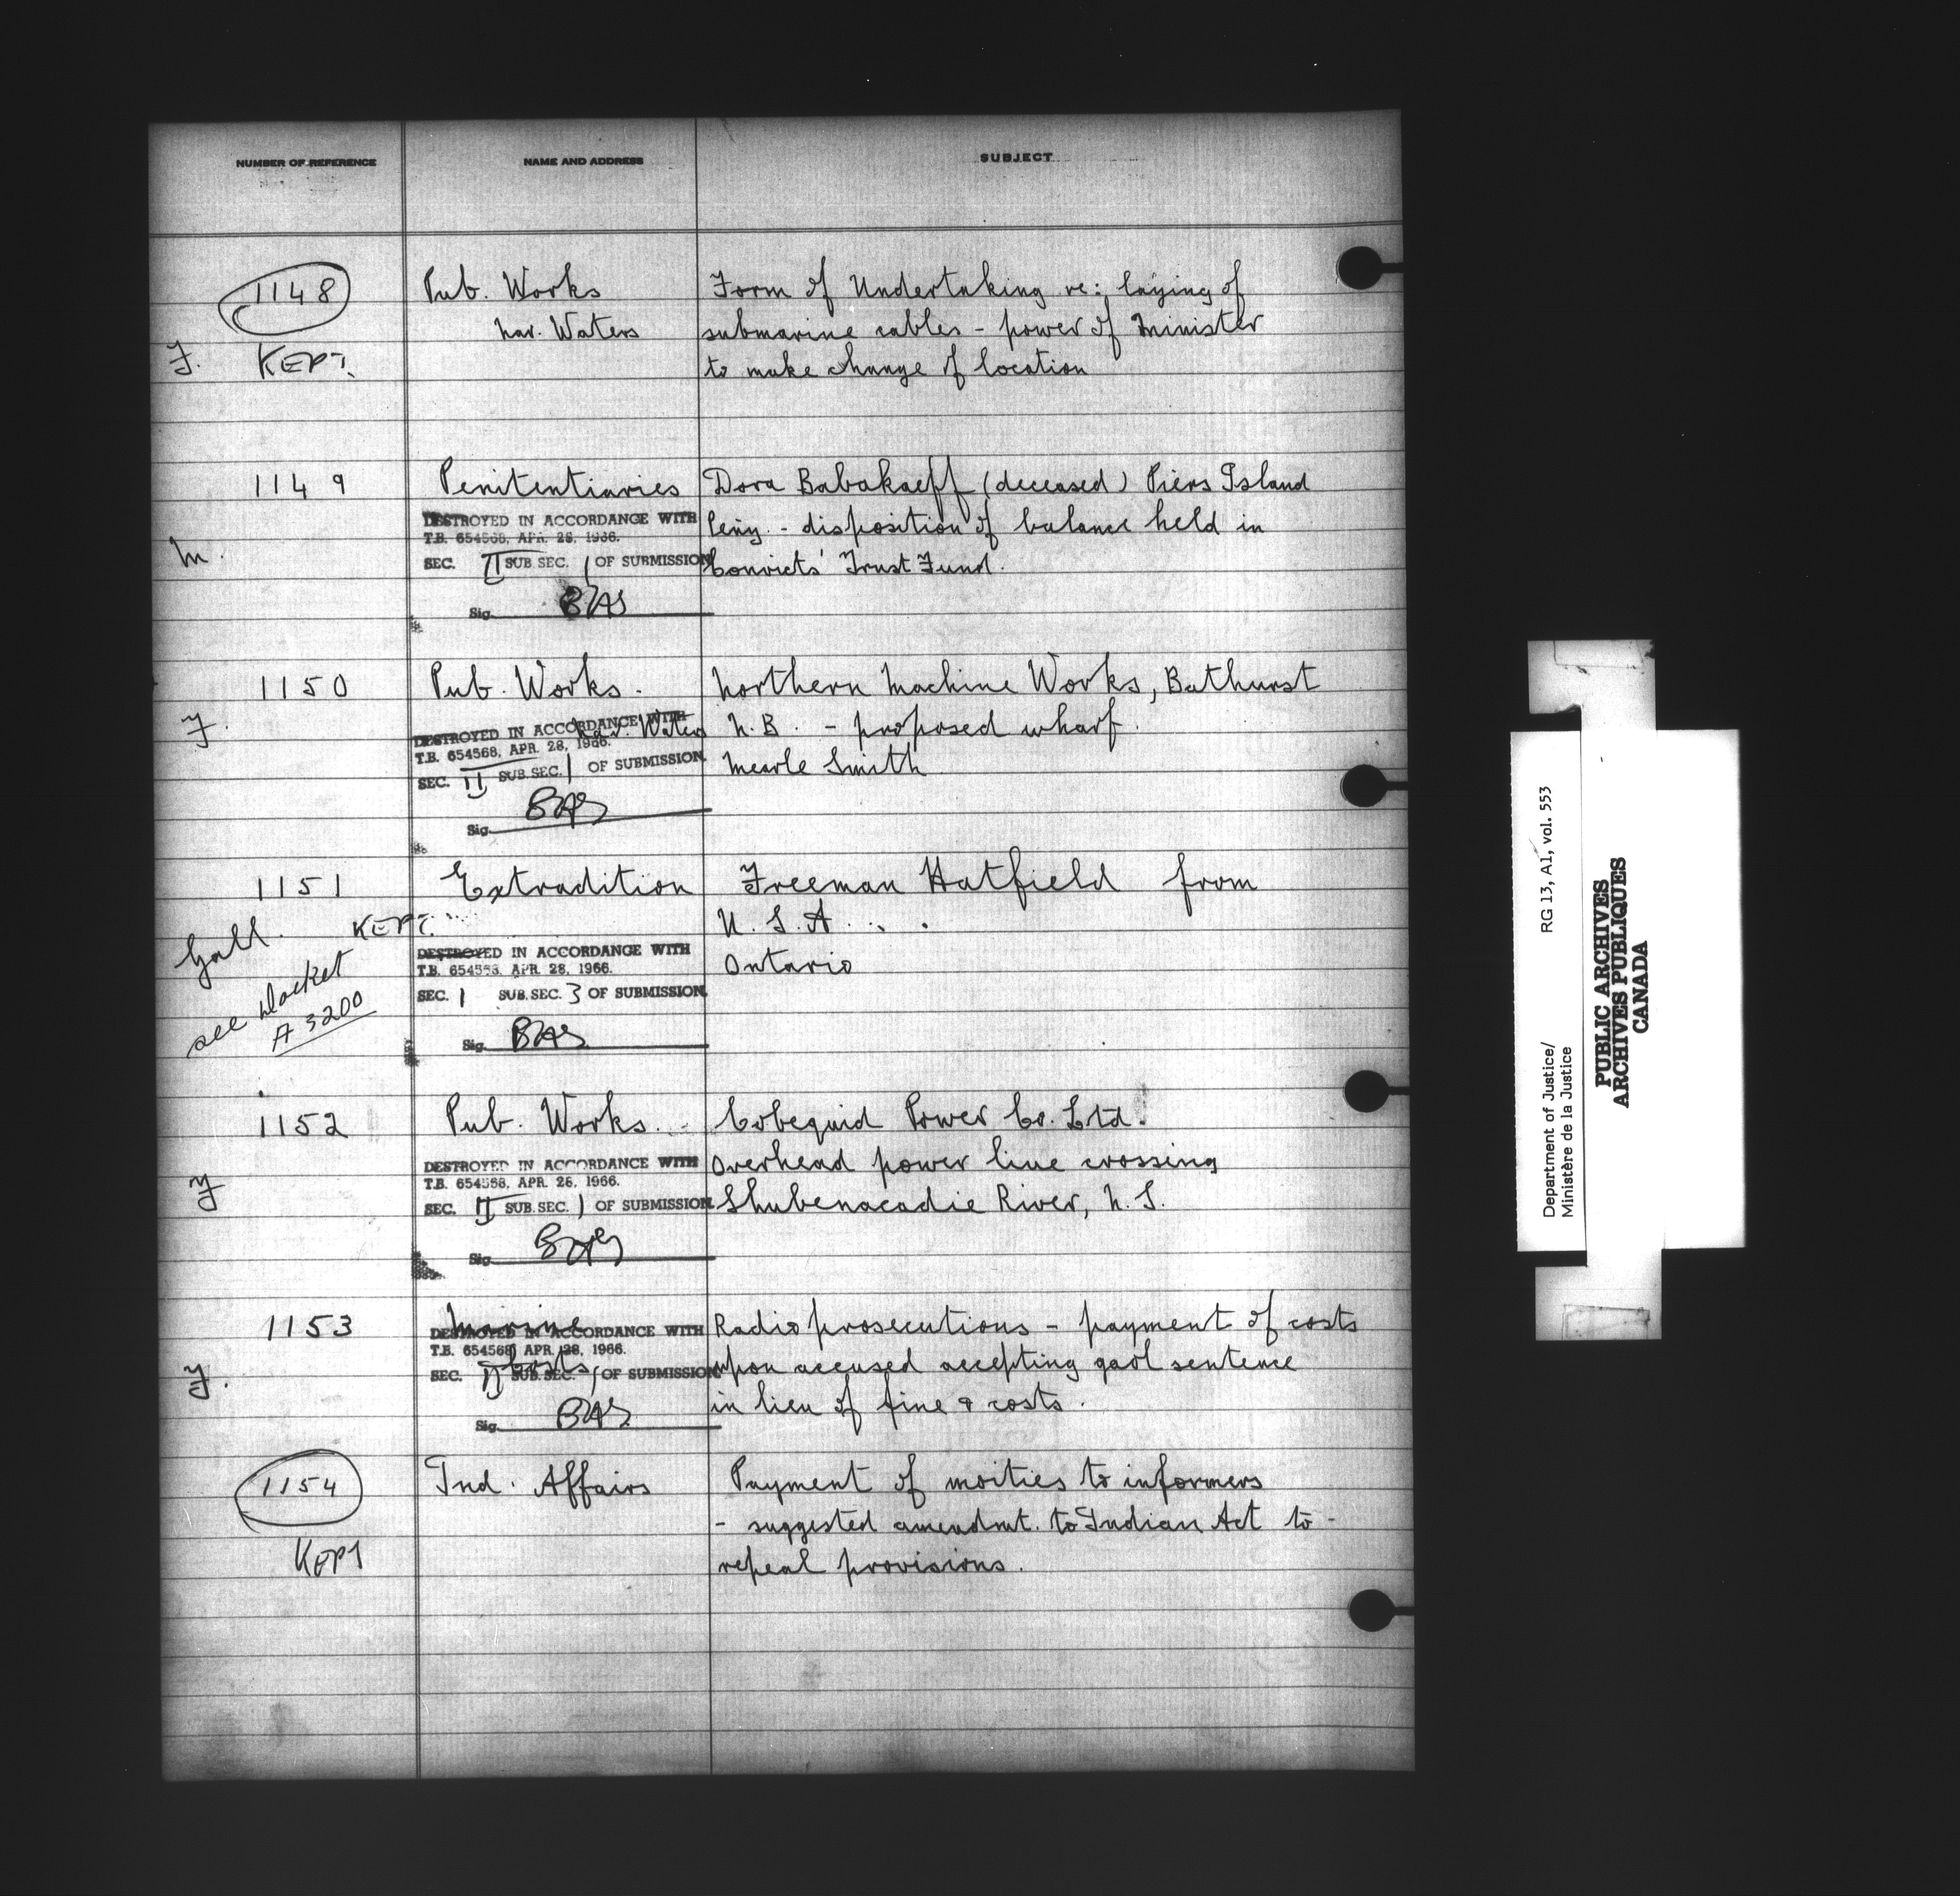 NUMBER OF REFERENCE NAME AND ADDRESS SUBJECT
1148 Pub. Works Form of Undertaking re: laying of
Nav. Waters submarine cables - power of Minister
F. KEPT. to make change of location
1149 Penitentiaries Dora Babakaeff (deceased) Piers Island
DESTROYED IN ACCORDANCE WITH Peny. - disposition of balance held in
T.B. 654568, APR. 28, 1966.
M. SEC. II SUB SEC. 1 OF SUBMISSION Convicts' Trust Fund.
Sig. BAS
1150 Pub. Works. Northern Machine Works, Bathurst
F. Nav. Waters N.B. - proposed wharf.
DESTROYED IN ACCORDANCE WITH
T.B. 654568, APR. 28, 1966.
SEC. II SUB SEC. 1 OF SUBMISSION Mearle Smith
Sig. BAS
1151 Extradition Freeman Hatfield from
KEPT. U.S.A.
DESTROYED IN ACCORDANCE WITH Ontario
T.B. 654568, APR. 28, 1966.
SEC. 1 SUB. SEC. 3 OF SUBMISSION
see docket
A 3200
Sig. BAS
1152 Pub. Works. - Cobequid Power Co. Ltd.
DESTROYED IN ACCORDANCE WITH Overhead power line crossing
T.B. 654568, APR. 28, 1966.
F SEC. II SUB. SEC. 1 OF SUBMISSION Shubenacadie River, N.S.
Sig. BAS
1153 Marine Radio prosecutions - payment of costs
DESTROYED IN ACCORDANCE WITH
T.B. 654568, APR. 28, 1966.
F. SEC. II SUB. SEC. 1 OF SUBMISSION upon accused accepting gaol sentence
in lieu of fine & costs.
Sig. BAS
1154 Ind. Affairs Payment of moities to informers
- suggested amendmt. to Indian Act to -
KEPT repeal provisions.
Department of Justice/ RG 13, A1, vol. 553
Ministère de la Justice
PUBLIC ARCHIVES
ARCHIVES PUBLIQUES
CANADA